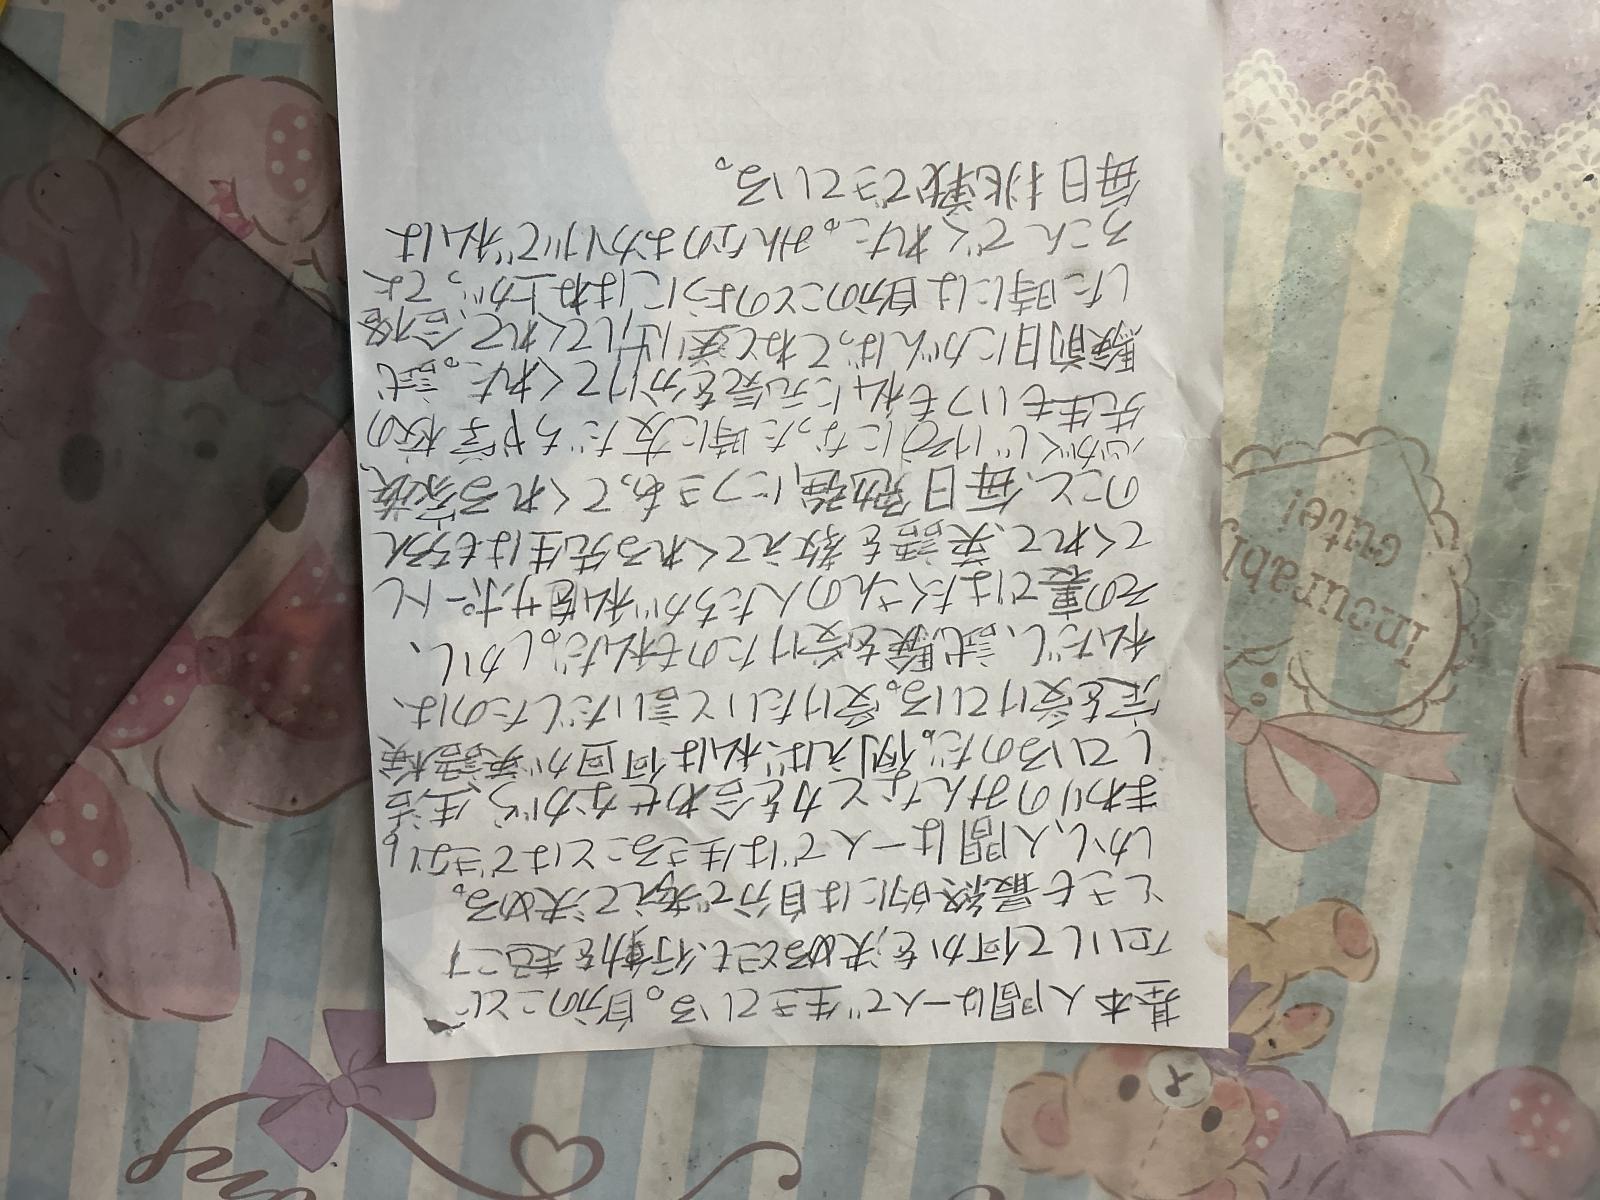 基本人間は一人で生きている。自分のことに
たいして何かを決めるときも、行動を起こす
ときも最終的には自分で考えて決める。
しかし、人間は一人では生きることはできない。
まわりのみんなと力を合わせながら、生活
しているのだ。例えば、私は何回か英語検
定を受けている。受けたいと言いだしたのは、
私だし、試験を受けたのも私だ。しかし、
その裏ではたくさんの人たちが私をサポートし
てくれて、英語を教えてくれる先生はもちろん
のこと、毎日勉強につきあってくれる家族、
心がくじけそうになった時に友だちや学校の
先生もいつも私に元気を分けてくれた。試
験前日にがんばってねと実は押してくれて、合格
した時には自分のことのようにはね上がってよ
ろこんでくれた。みんなのおかげで私は
毎日挑戦できている。
Incurably
Cute!
my